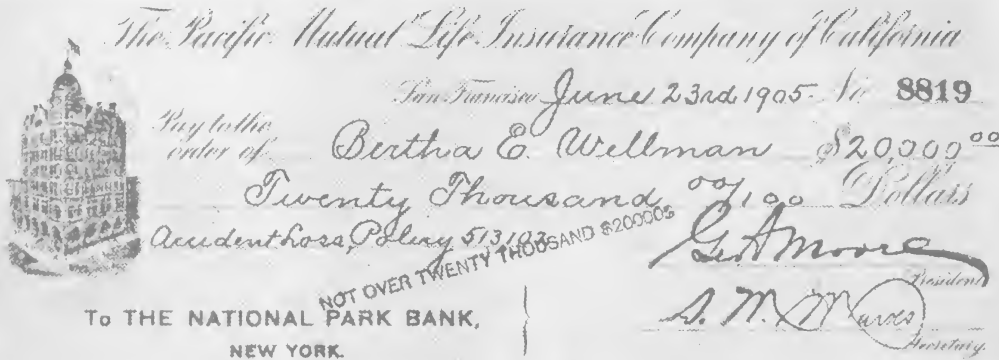 The Pacific Mutual Life Insurance Company of California
San Francisco June 23rd 1905 No 8819
Pay to the order of Bertha E. Wellman $20,000 00
Twenty Thousand 00/100 Dollars
Accident Loss, Policy 513102
NOT OVER TWENTY THOUSAND $20000$
Geo A Moore
President
TO THE NATIONAL PARK BANK,
NEW YORK.
S. M.
Secretary.